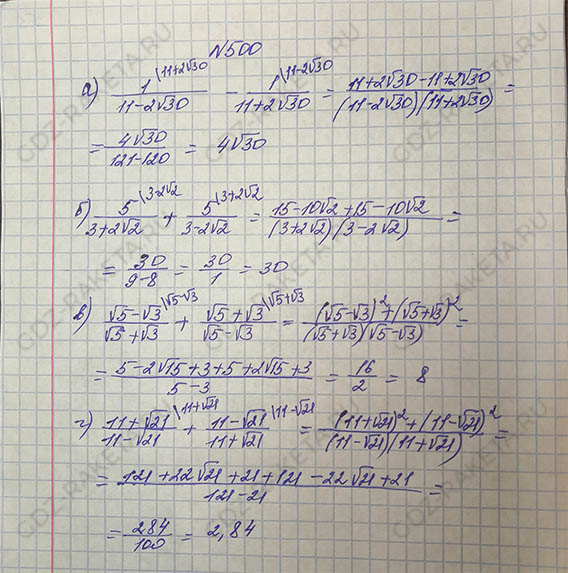 N500
а) 1\11+2√30 / 11-2√30 - 1\11-2√30 / 11+2√30 = 11+2√30-11+2√30 / (11-2√30)(11+2√30) =
= 4√30 / 121-120 = 4√30
б) 5\3-2√2 / 3+2√2 + 5\3+2√2 / 3-2√2 = 15-10√2+15-10√2 / (3+2√2)(3-2√2) =
= 30 / 9-8 = 30 / 1 = 30
в) √5-√3\√5-√3 / √5+√3 + √5+√3\√5+√3 / √5-√3 = (√5-√3)²+(√5+√3)² / (√5+√3)(√5-√3) =
= 5-2√15+3+5+2√15+3 / 5-3 = 16 / 2 = 8
г) 11+√21\11+√21 / 11-√21 + 11-√21\11-√21 / 11+√21 = (11+√21)²+(11-√21)² / (11-√21)(11+√21) =
= 121+22√21+21+121-22√21+21 / 121-21 =
= 284 / 100 = 2,84
GDZ-RAKETA.RU